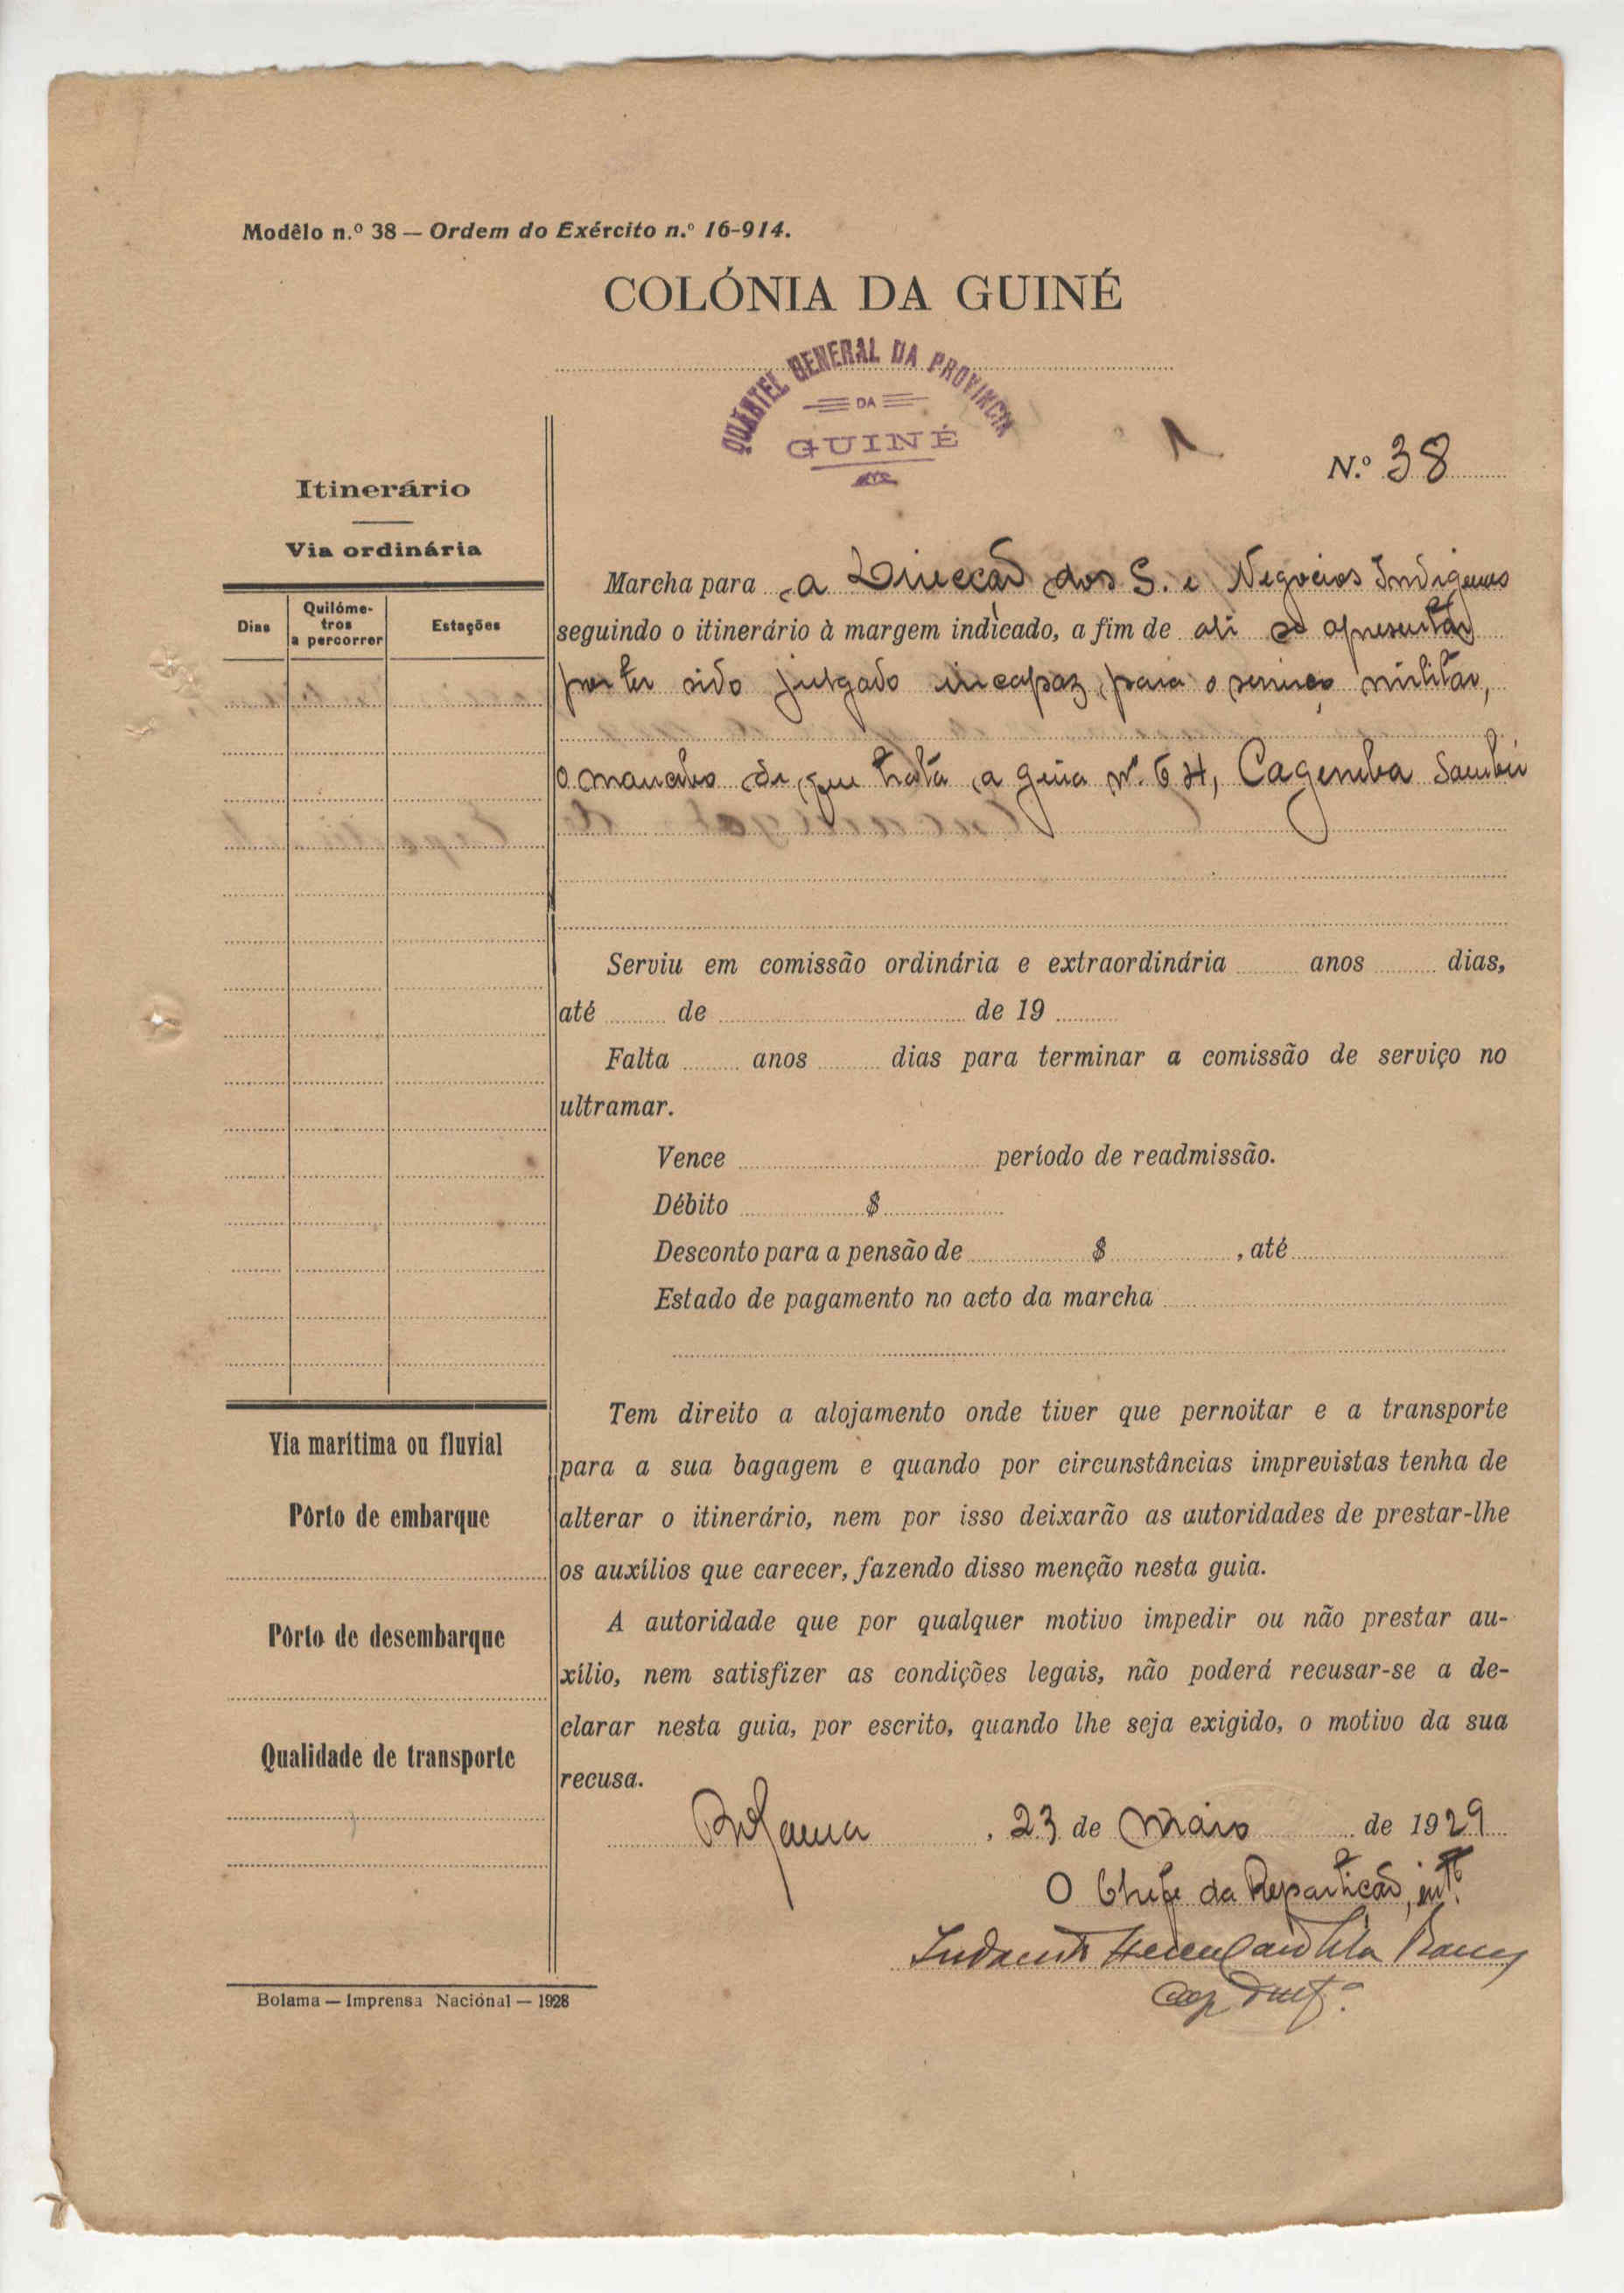 Modêlo n.º 38 — Ordem do Exército n.º 16-914.
COLÓNIA DA GUINÉ
QUARTEL GENERAL DA PROVINCIA
DA
GUINÉ
N.º 38
Itinerário
Via ordinária
Dias
Quilóme-
tros
a percorrer
Estações
Marcha para a Direcção dos S. e Negócios Indigenas
seguindo o itinerário à margem indicado, a fim de ali se apresentar
por ter sido julgado incapaz para o serviço militar,
o mancebo de que trata a guia nº 64, Cagemba Sambú
Serviu em comissão ordinária e extraordinária anos dias,
até de de 19
Falta anos dias para terminar a comissão de serviço no
ultramar.
Vence período de readmissão.
Débito $
Desconto para a pensão de $ , até
Estado de pagamento no acto da marcha
Tem direito a alojamento onde tiver que pernoitar e a transporte
para a sua bagagem e quando por circunstâncias imprevistas tenha de
alterar o itinerário, nem por isso deixarão as autoridades de prestar-lhe
os auxílios que carecer, fazendo disso menção nesta guia.
A autoridade que por qualquer motivo impedir ou não prestar au-
xílio, nem satisfizer as condições legais, não poderá recusar-se a de-
clarar nesta guia, por escrito, quando lhe seja exigido, o motivo da sua
recusa.
Via marítima ou fluvial
Pôrto de embarque
Pôrto de desembarque
Qualidade de transporte
Bolama, 23 de Maio de 1929
O Chefe da Repartição, intº.
Bolama — Imprensa Nacional — 1928